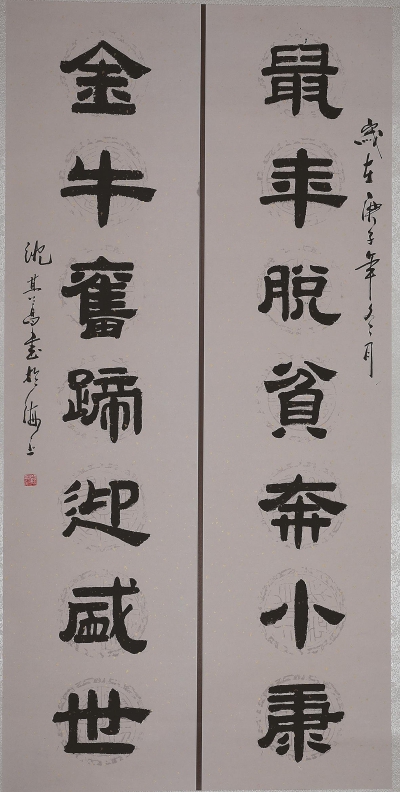 歲在庚子年冬月
鼠年脫貧奔小康
金牛奮蹄迎盛世
沈其書於海上